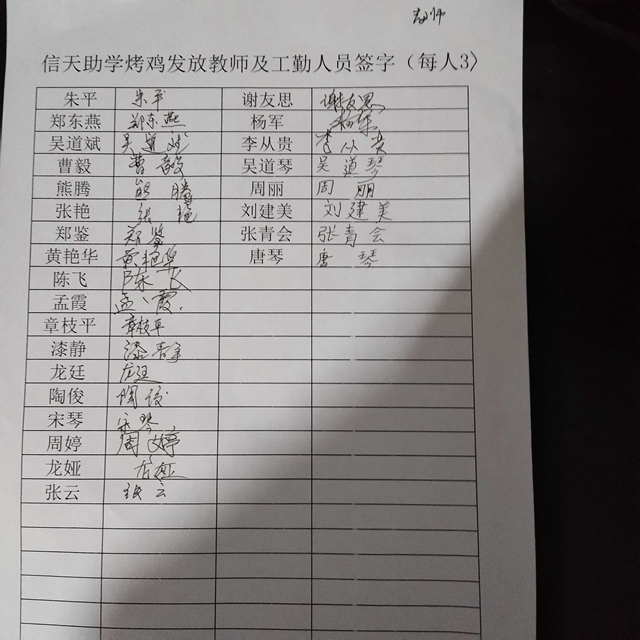 教师
信天助学烤鸡发放教师及工勤人员签字（每人3〉
朱平 朱平 谢友思 谢友思
郑东燕 郑东燕 杨军 杨军
吴道斌 吴道斌 李从贵 李从贵
曹毅 曹毅 吴道琴 吴道琴
熊腾 熊腾 周丽 周丽
张艳 张艳 刘建美 刘建美
郑鉴 郑鉴 张青会 张青会
黄艳华 黄艳华 唐琴 唐琴
陈飞 陈飞
孟霞 孟霞
章枝平 章枝平
漆静 漆静
龙廷 龙廷
陶俊 陶俊
宋琴 宋琴
周婷 周婷
龙娅 龙娅
张云 张云